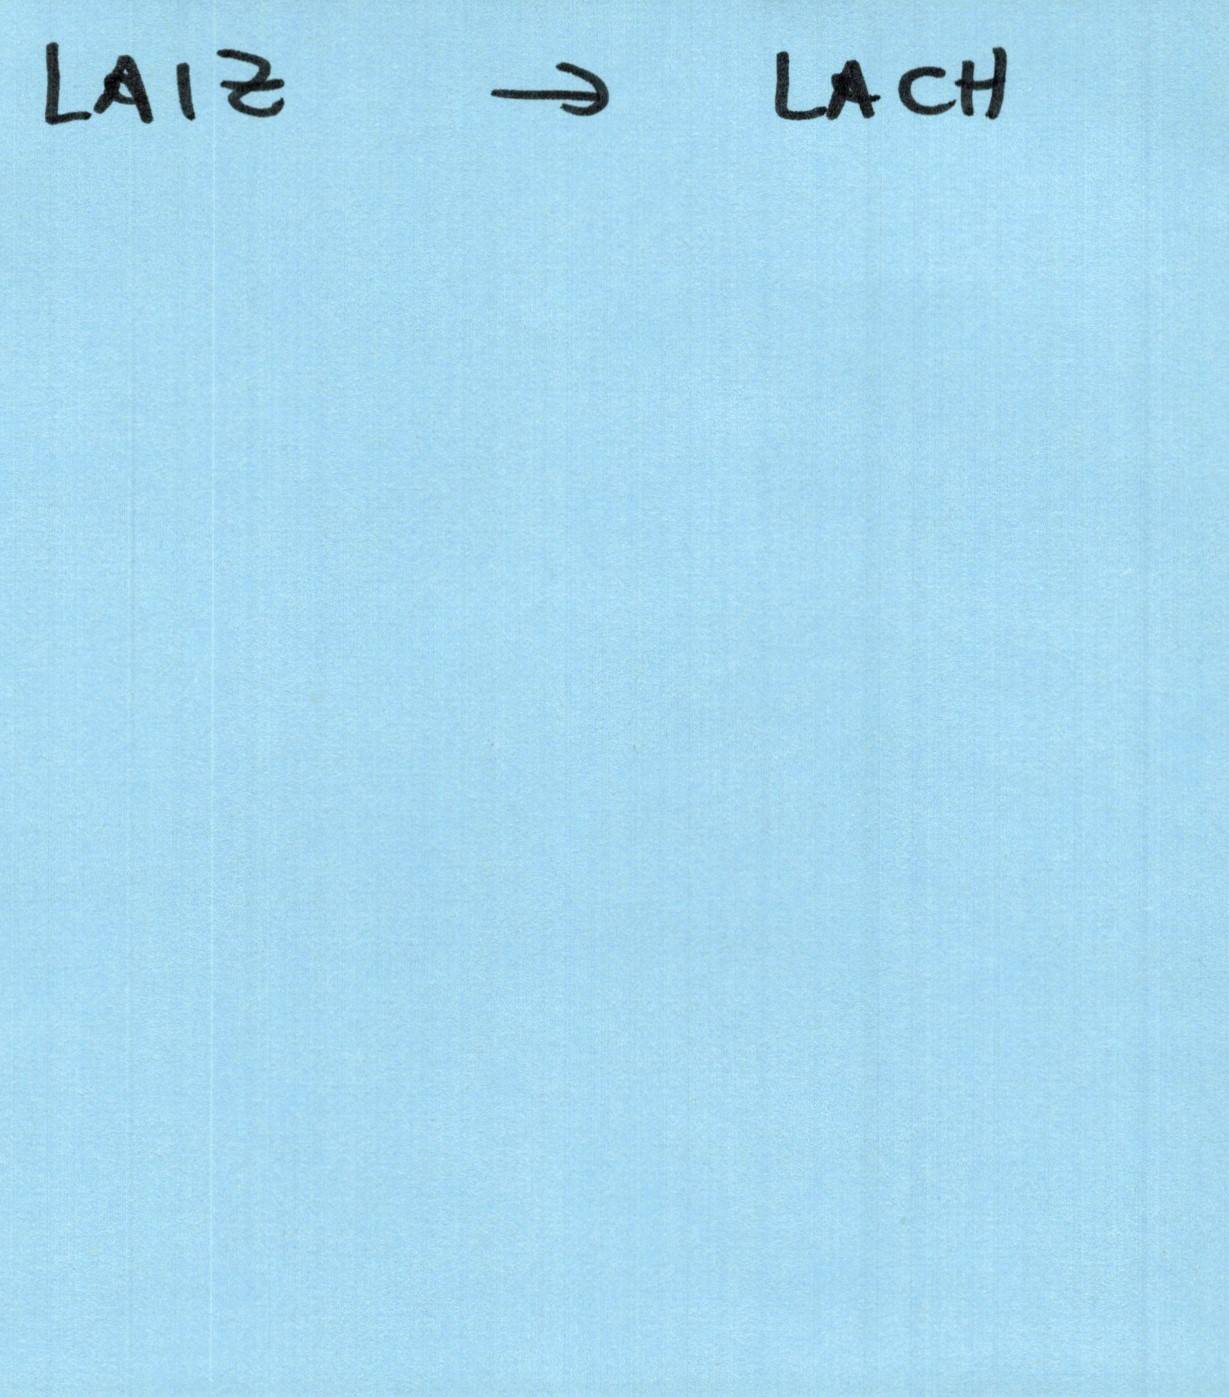 LAIZ → LACH